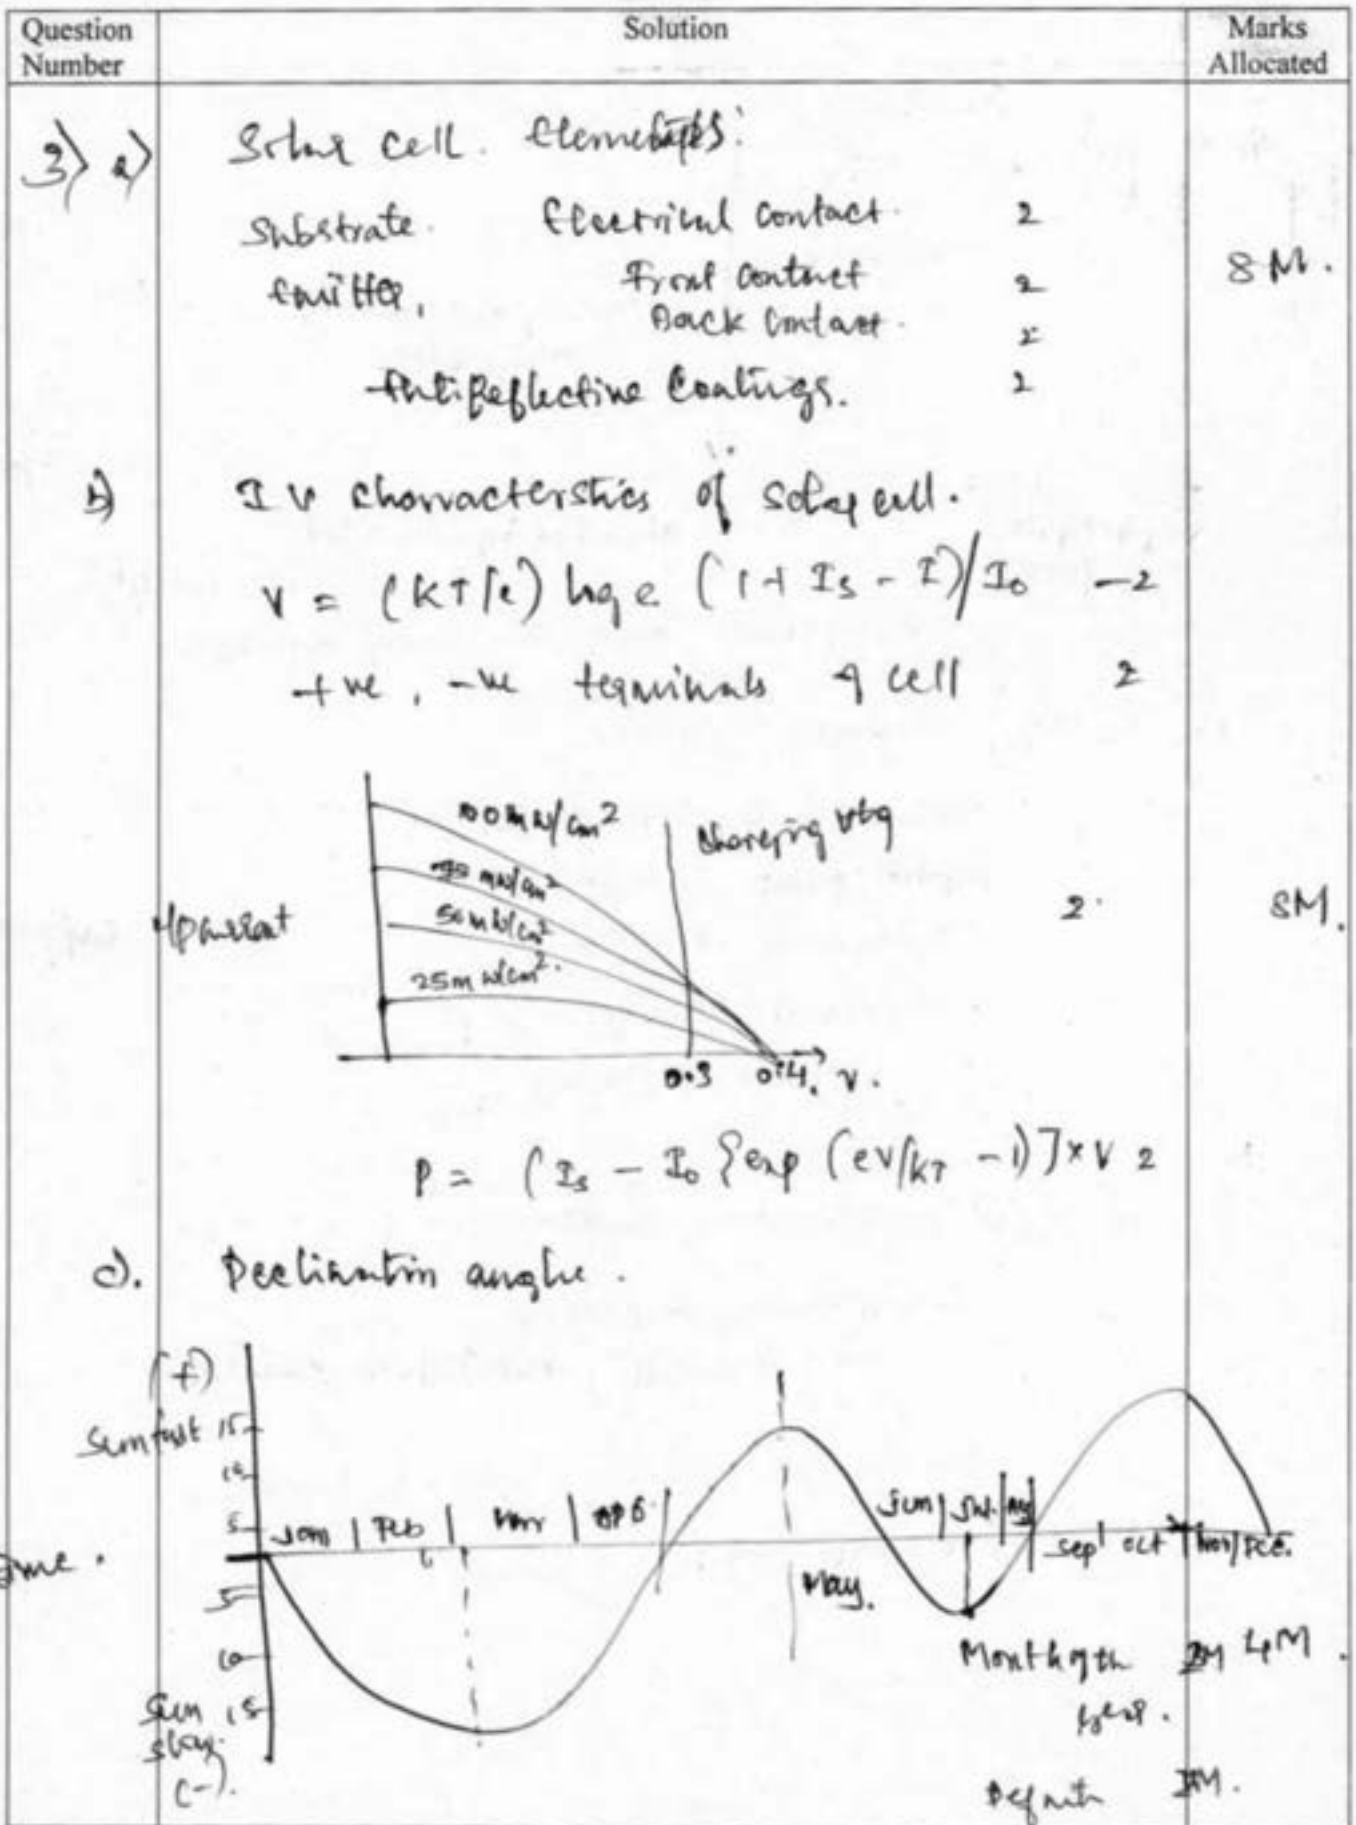 Question Number
Solution
Marks Allocated
3) a)
Solar cell. Elements:
Substrate. Electrical contact. 2
Emitter, Front contact 2
8 M.
Back Contact. 2
Antireflective Coatings. 2
b) IV characterstics of solar cell.
V = (KT/e) log e (1 + Is - I)/Io - 2
+ve, -ve terminals of cell 2
100 mw/cm²
charging vtg
mw/cm²
50 mw/cm²
25 mw/cm².
2.
8M.
0.3 0.4. V.
P = (Is - Io {exp (eV/KT - 1)] x V 2
c). Declination angle.
(+)
Sun fast 15
10
5
Jan | Feb | Mar | Apr
Jun | Jul. | Aug
Sep | Oct | Nov/Dec.
5
May.
10
Month of the 4M.
year.
Sun 15
slow
(-).